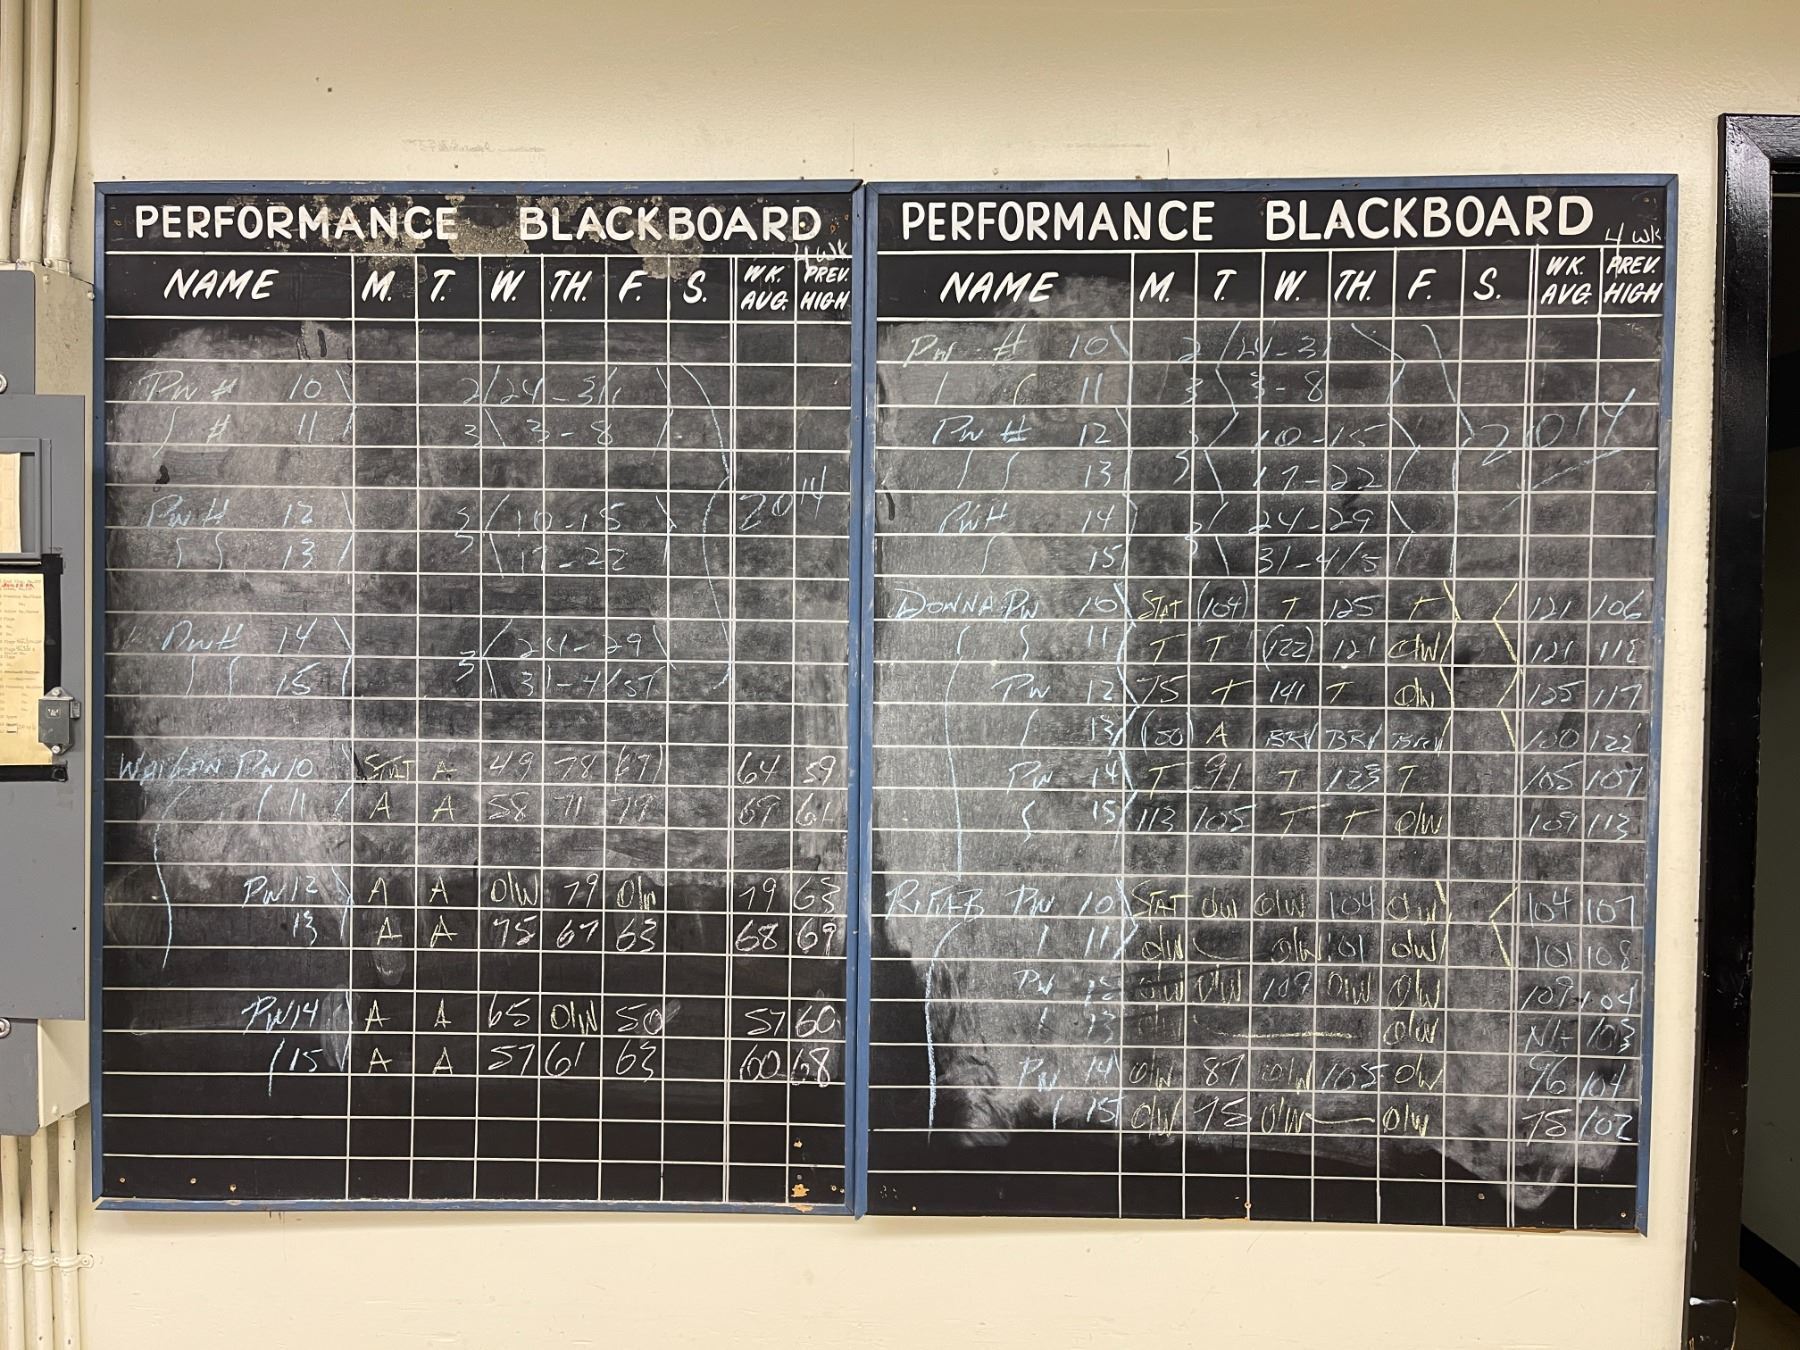 PERFORMANCE BLACKBOARD
4 WK
NAME M. T. W. TH. F. S. WK. AVG. PREV. HIGH
PW # 10 2/24-3/1
# 11 3 3-8
PW # 12 3 10-15 2014
13 17-22
PW # 14 3 24-29
15 31-4/5
PW 10 STAT A 49 78 (67) 64 59
11 A A 58 71 79 69 61
PW 12 A A O/W 79 O/W 79 63
13 A A 75 67 63 68 69
PW 14 A A 65 O/W 50 57 60
15 A A 57 61 63 60 68
PERFORMANCE BLACKBOARD
4 WK
NAME M. T. W. TH. F. S. WK. AVG. PREV. HIGH
PW # 10 2/24-31
11 3 3-8
PW # 12 3 10-15 2014
13 17-22
PW # 14 3 24-29
15 31-4/5
DONNA PW 10 STAT (104) T 125 T 121 106
11 T T (122) 121 O/W 121
PW 12 75 T 141 T O/W 125 117
13 (80) A 100 122
PW 14 T 91 T 123 T 105 107
15 113 105 T T O/W 109 113
PW 10 STAT O/W O/W 104 O/W 104 107
11 O/W O/W 101 O/W 101 108
PW 12 O/W O/W 109 O/W O/W 109 104
13 O/W O/W 103
PW 14 O/W 87 O/W 105 O/W 96 104
15 O/W 78 O/W — O/W 78 102